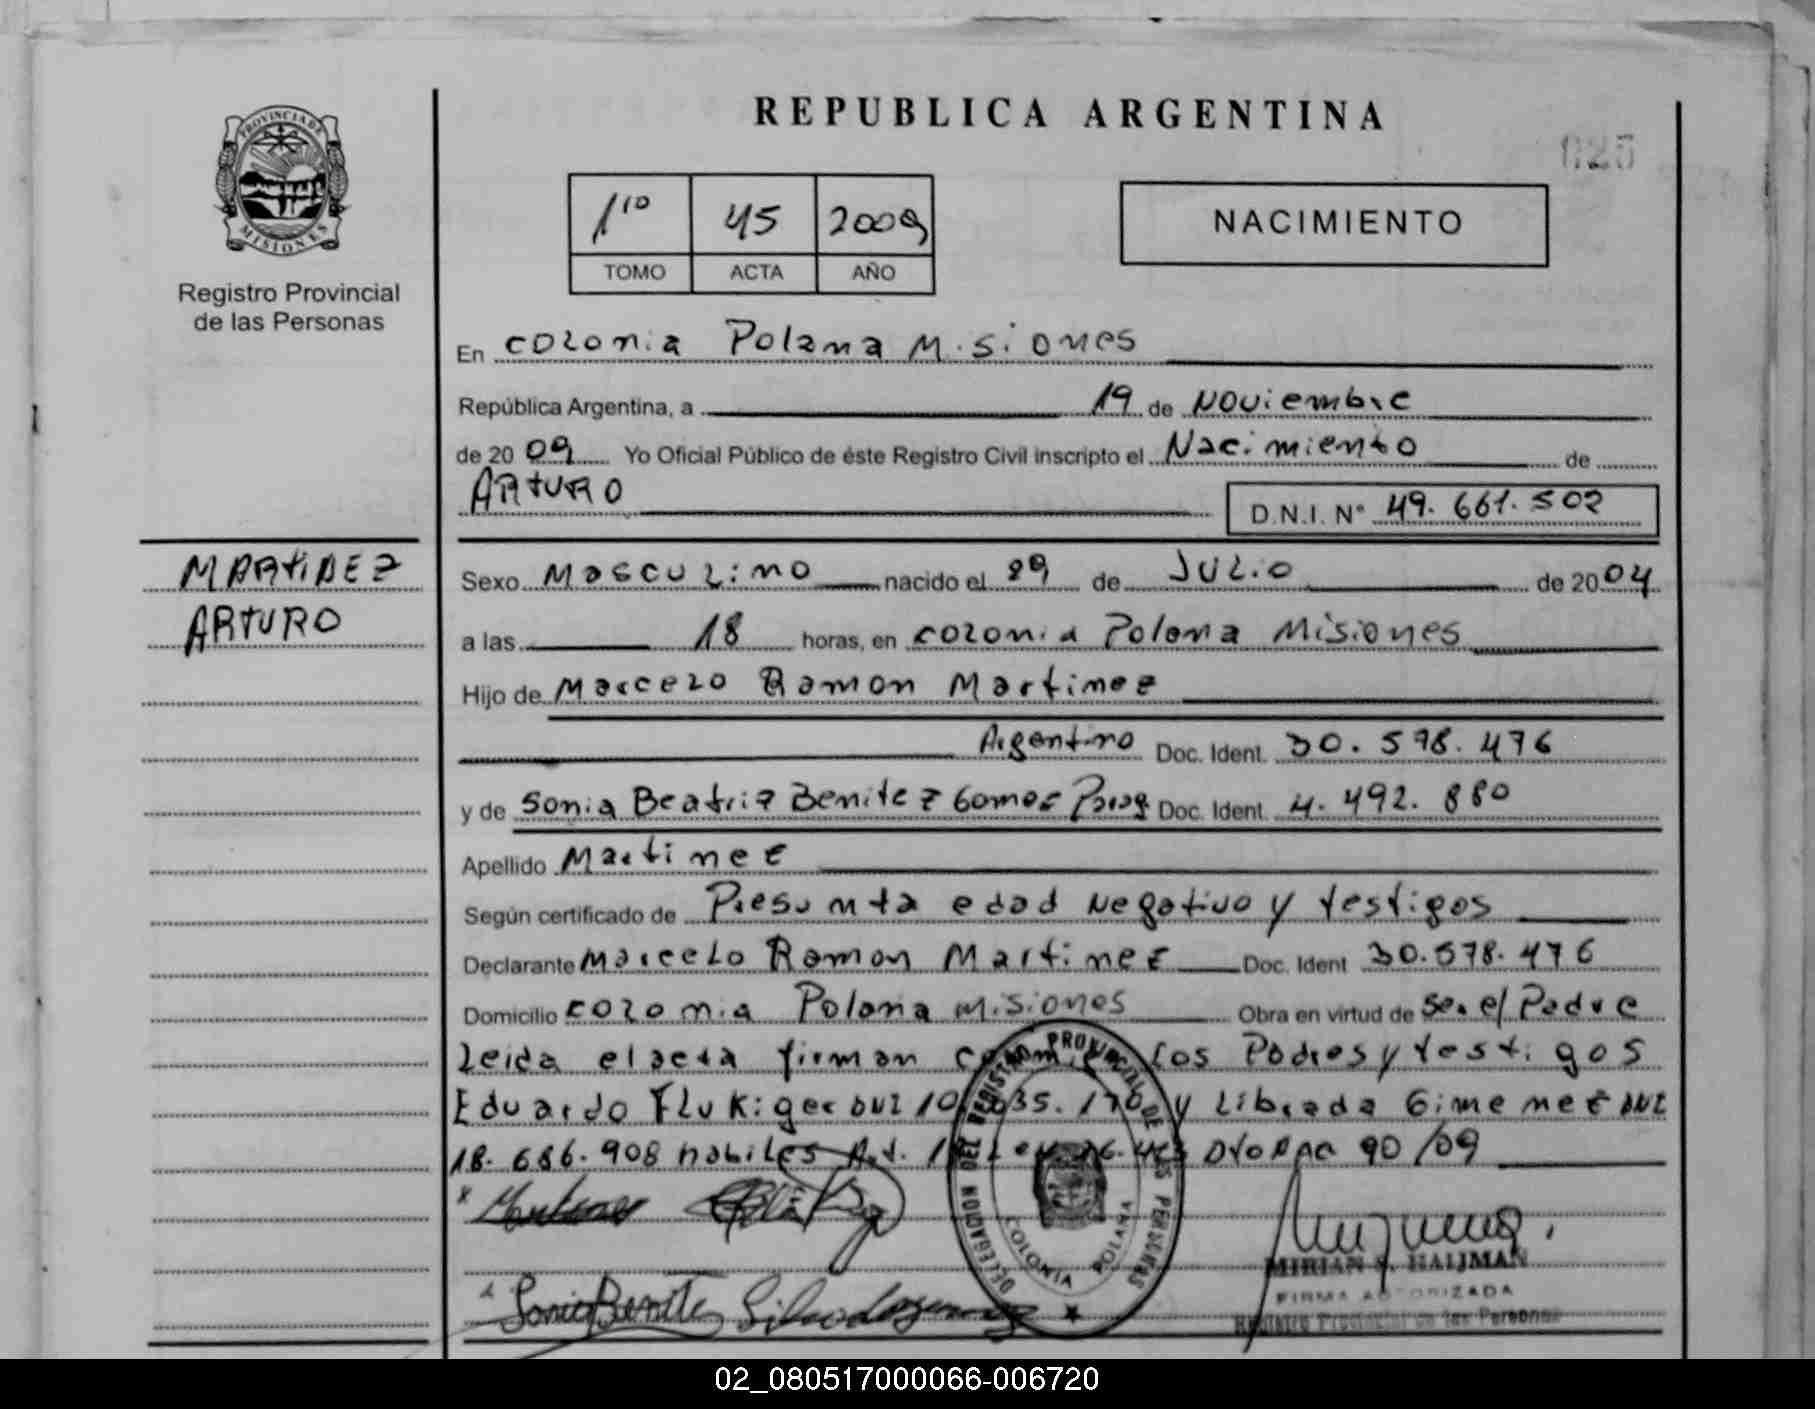 REPUBLICA ARGENTINA
025
PROVINCIA DE
MISIONES
Registro Provincial
de las Personas
1º 45 2009
TOMO ACTA AÑO
NACIMIENTO
En Colonia Polana Misiones
República Argentina, a 19 de Noviembre
de 2009 Yo Oficial Público de éste Registro Civil inscripto el Nacimiento de
ARTURO D.N.I. Nº 49.661.502
MARTINEZ
ARTURO
Sexo Masculino nacido el 29 de JULIO de 2004
a las 18 horas, en Colonia Polana Misiones
Hijo de Marcelo Ramon Martinez
Argentino Doc. Ident. 30.578.476
y de Sonia Beatriz Benitez Gomez Parag Doc. Ident. 4.492.880
Apellido Martinez
Según certificado de Presunta edad Negativo y testigos
Declarante Marcelo Ramon Martinez Doc. Ident 30.578.476
Domicilio Colonia Polana Misiones Obra en virtud de Ser el Padre
Leida el acta firman los Padres y testigos
Eduardo Flukiger DNI y Librada Gimenez DNI
18.686.908 habiles Art. 90/09
DELEGACION DEL REGISTRO PROVINCIAL DE LAS PERSONAS
COLONIA POLANA
Sonia Benitez
MIRIAN HAIJMAN
FIRMA AUTORIZADA
Registro Provincial de las Personas
02_080517000066-006720